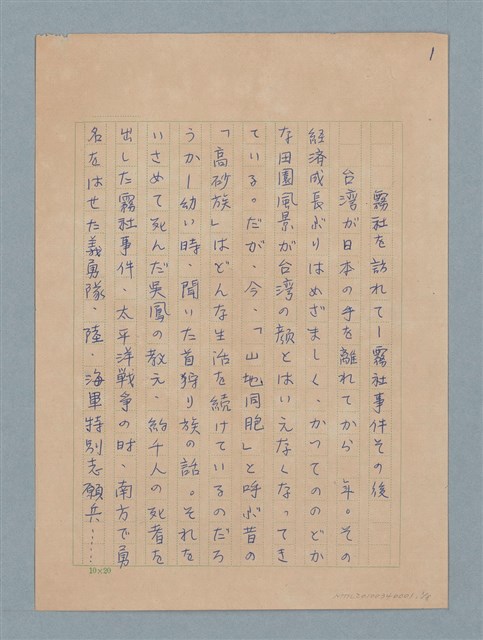 1
霧社を訪れてー霧社事件その後
台湾が日本の手を離れてから　年。その
経済成長ぶりはめざましく、かつてののどか
な田園風景が台湾の顔とはいえなくなってき
ている。だが、今、「山地同胞」と呼ぶ昔の
「高砂族」はどんな生活を続けているのだろ
うかー幼い時、聞いた首狩り族の話。それを
いさめて死んだ呉鳳の教え、約千人の死者を
出した霧社事件、太平洋戦争の時、南方で勇
名をはせた義勇隊、陸、海軍特別志願兵……
10×20